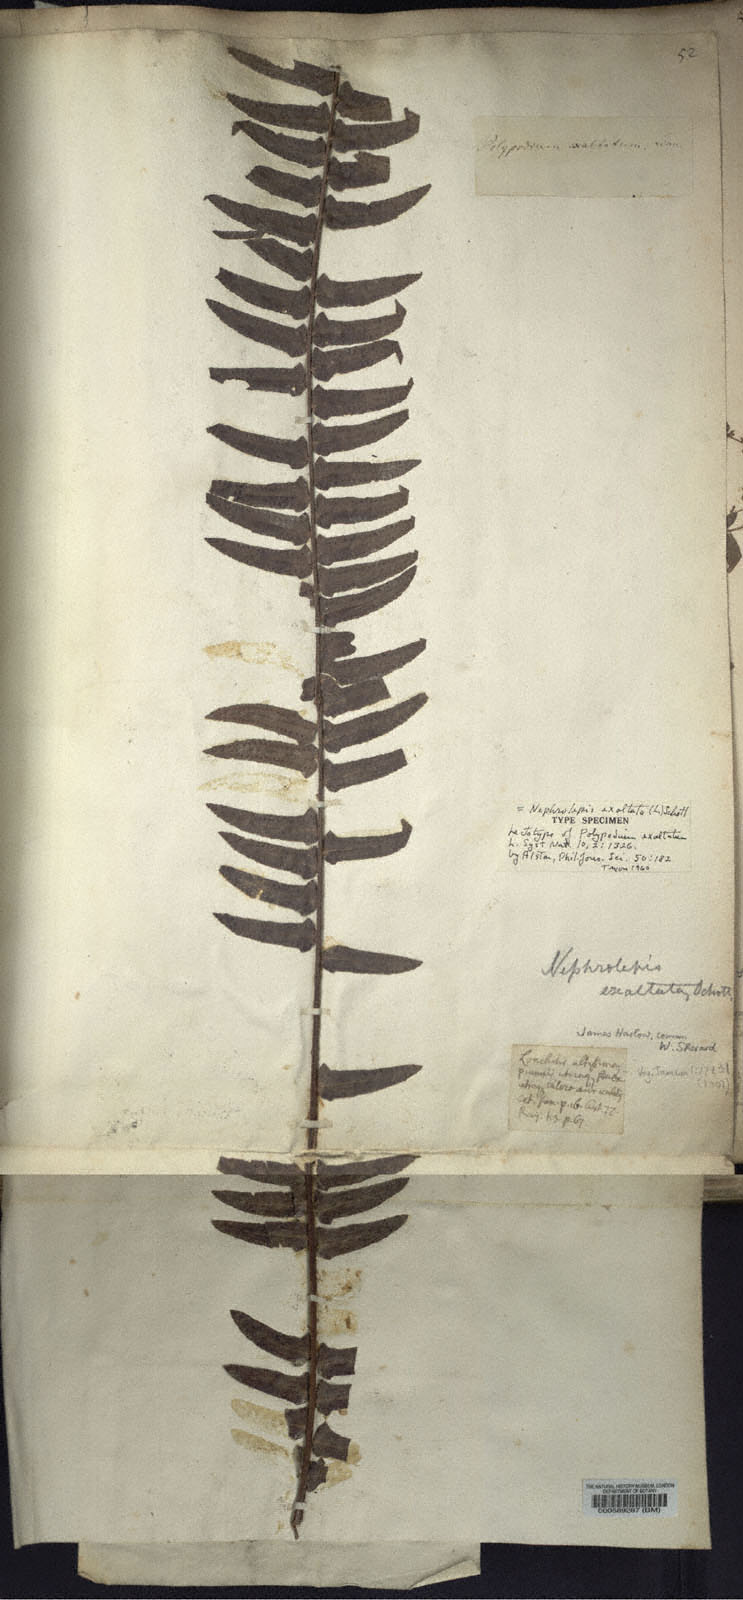 52
Polypodium exaltatum, Linn.
= Nephrolepis exaltata (L) Schott
TYPE SPECIMEN
Lectotype of Polypodium exaltatum
L. Syst. Nat. 10, 2: 1326.
by Alston, Phil. Jour. Sci. 50: 182
Taxon 1960
Nephrolepis
exaltata, Schott.
James Harlow, comm.
W. Sherard
Lonchitis altissima,
pinnulis
Cat. Jam. p. 16.
Raij. t. 3. p. 67.
THE NATURAL HISTORY MUSEUM, LONDON
DEPARTMENT OF BOTANY
000589267 (BM)